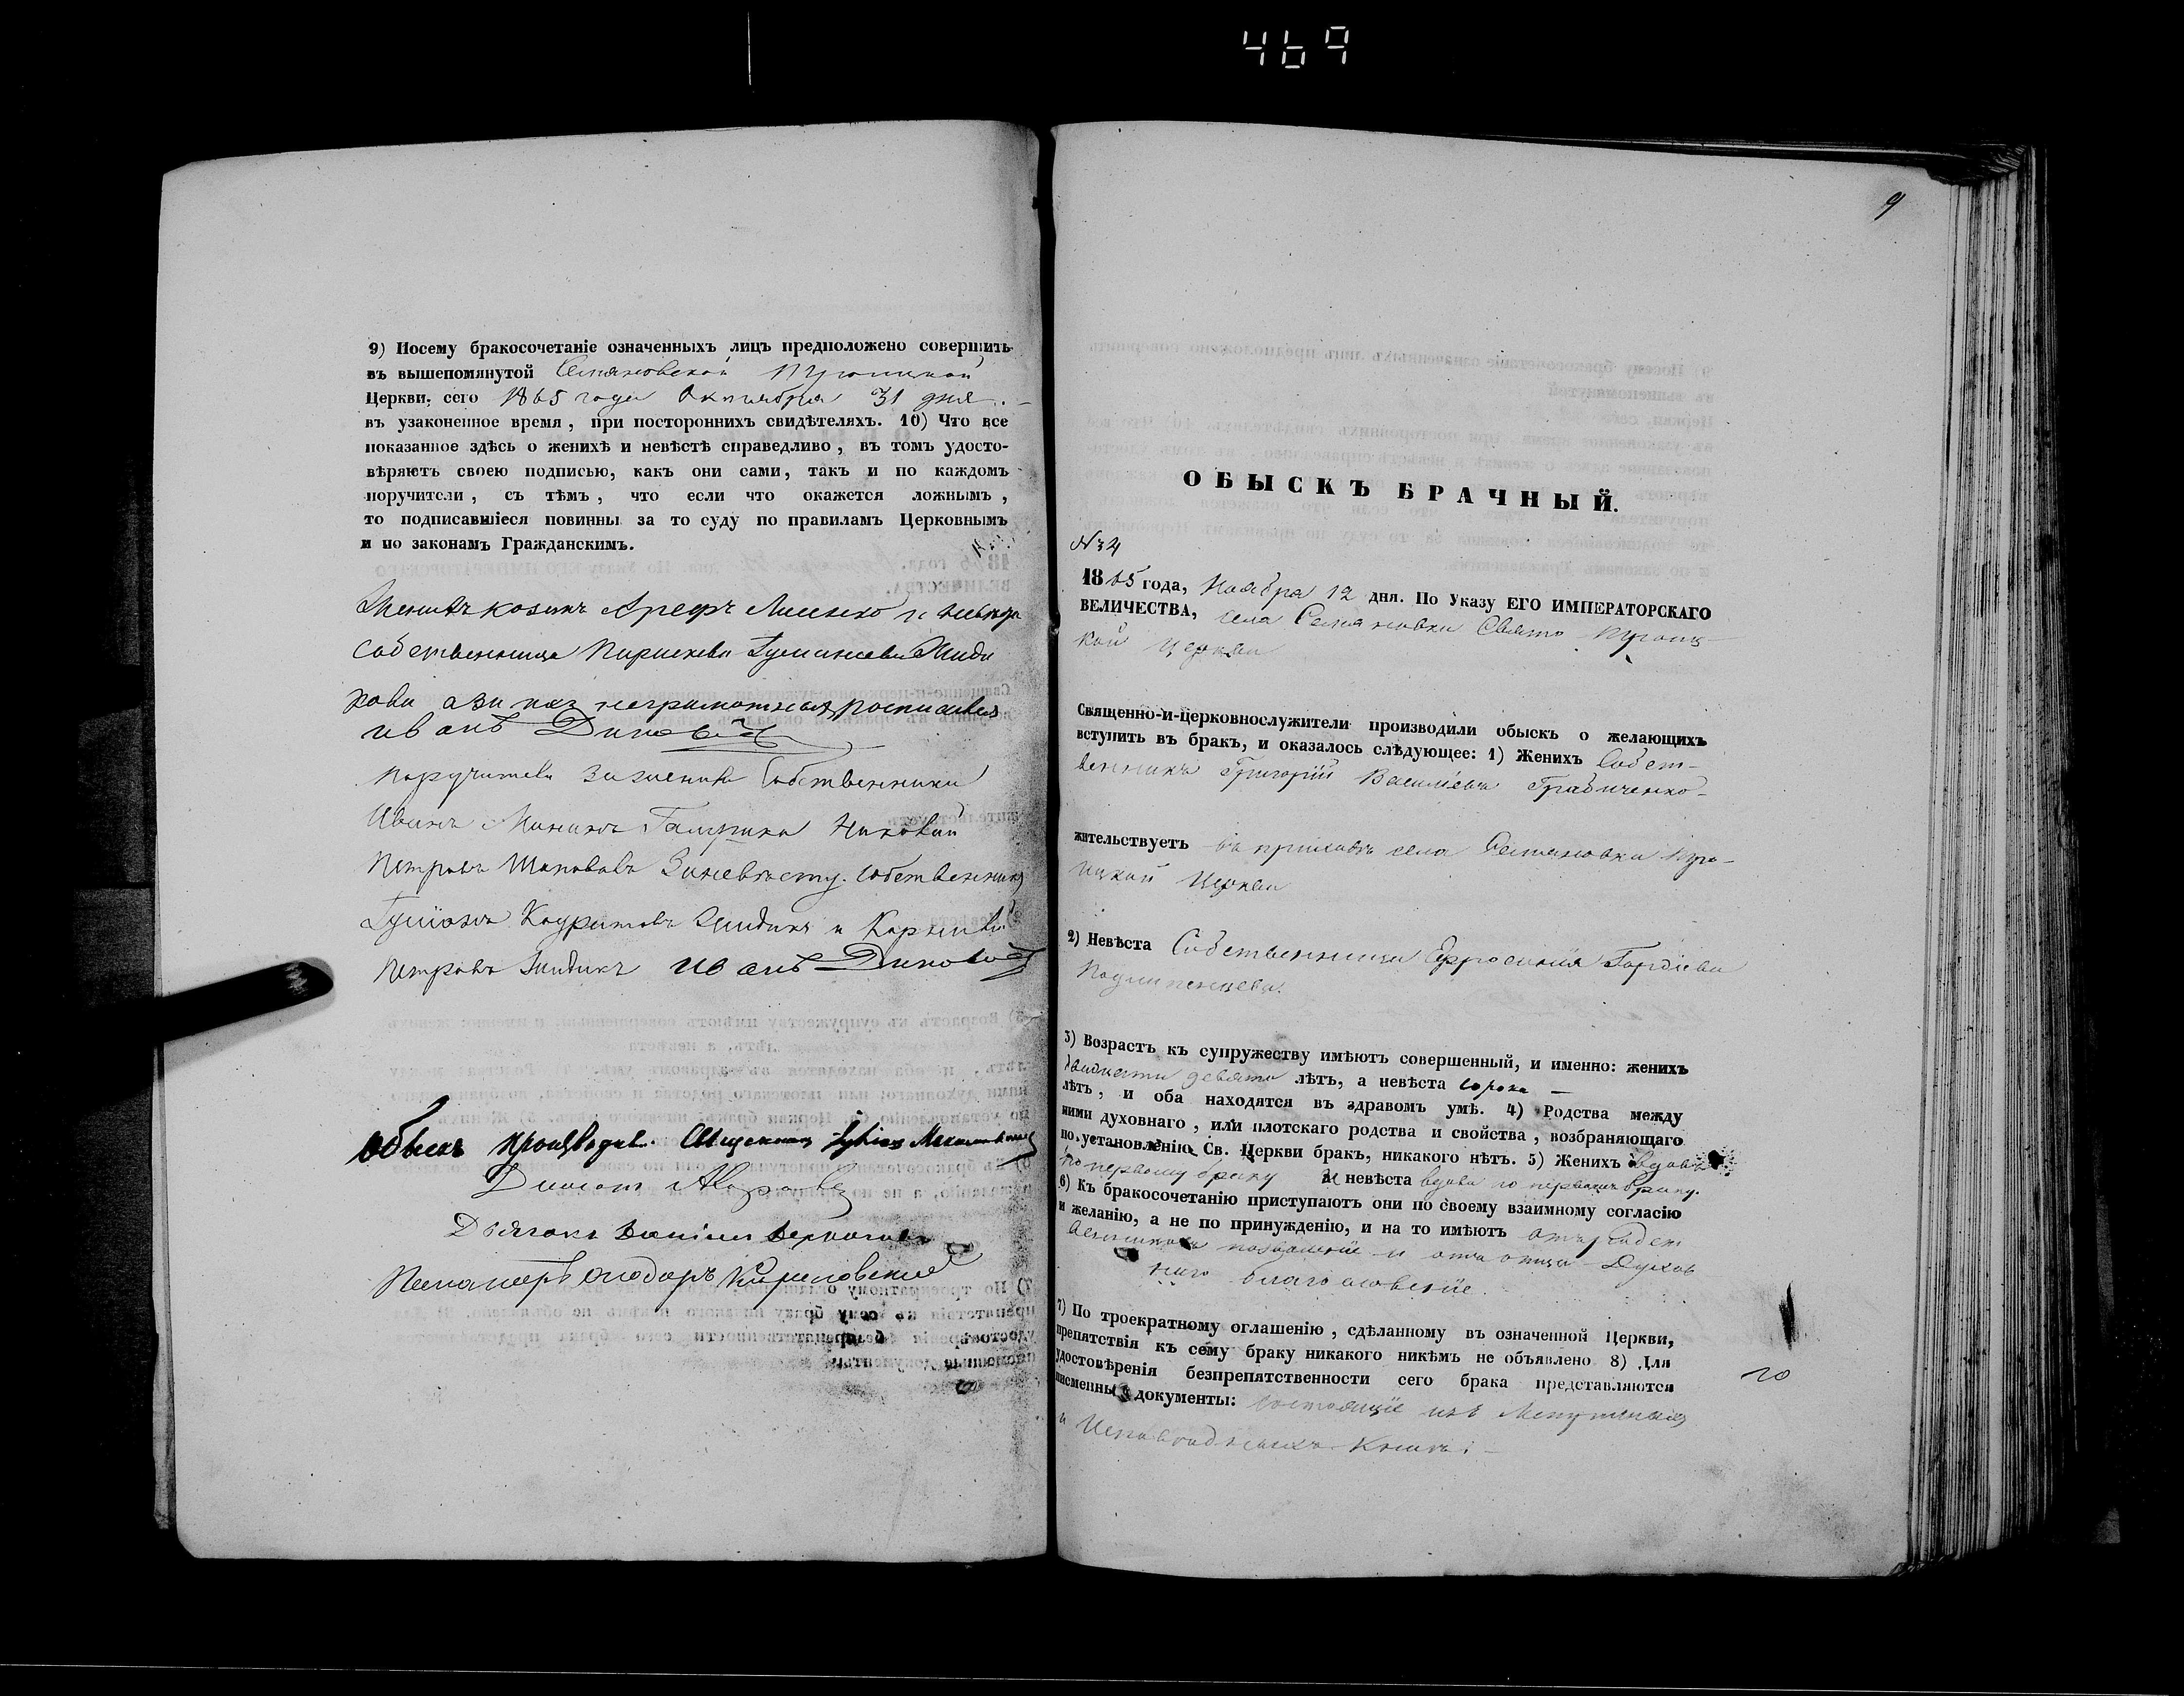 469
9) Посему бракосочетаніе означенныхъ лицъ предположено совершить
въ вышепомянутой Семяновской Троицкой
Церкви, сего 1865 года Октября 31 дня.
въ узаконенное время, при постороннихъ свидѣтеляхъ. 10) Что все
показанное здѣсь о женихѣ и невѣстѣ справедливо, въ томъ удосто-
вѣряютъ своею подписью, какъ они сами, такъ и по каждомъ
поручители, съ тѣмъ, что если что окажется ложнымъ,
то подписавшіеся повинны за то суду по правиламъ Церковнымъ
и по законамъ Гражданскимъ.
Женихъ козакъ Арефъ и
Собственница
рова а за нихъ неграмотныхъ росписался
иванъ
поручители за жениха Собственники
Иванъ
Петровъ за невѣсту собственники
и
Петровъ иванъ
обыскъ производилъ Священникъ

Дьячокъ
Пономарь Ѳеодоръ Кириловский
9
ОБЫСКЪ БРАЧНЫЙ.
№ 34
1865 года, Ноября 12 дня. По Указу ЕГО ИМПЕРАТОРСКАГО
ВЕЛИЧЕСТВА, села Семяновки Свято-Троиц-
кой церкви
Священно-и-церковнослужители производили обыскъ о желающихъ
вступить въ бракъ, и оказалось слѣдующее: 1) Женихъ Собст-
венникъ Григорій Василіевъ Грабиченко
жительствуетъ въ приходѣ села Семяновки Тро-
ицкой Церкви
2) Невѣста Собственница Ефросинія Гордіева
3) Возрастъ къ супружеству имѣютъ совершенный, и именно: женихъ
двадцати девяти лѣтъ, а невѣста сорока —
лѣтъ, и оба находятся въ здравомъ умѣ. 4) Родства между
ними духовнаго, или плотскаго родства и свойства, возбраняющаго
по установленію Св. Церкви бракъ, никакого нѣтъ. 5) Женихъ вдовъ
по первому браку и невѣста вдова по первому браку.
6) Къ бракосочетанію приступаютъ они по своему взаимному согласію
и желанію, а не по принужденію, и на то имѣютъ отъ
позволеніе и отъ отца Духов
наго благословеніе.
7) По троекратному оглашенію, сдѣланному въ означенной Церкви,
препятствія къ сему браку никакого никѣмъ не объявлено 8) Для
удостовѣренія безпрепятственности сего брака представляются
писменные документы: состоящіе изъ Метричныхъ
и Исповѣдныхъ Книгъ.